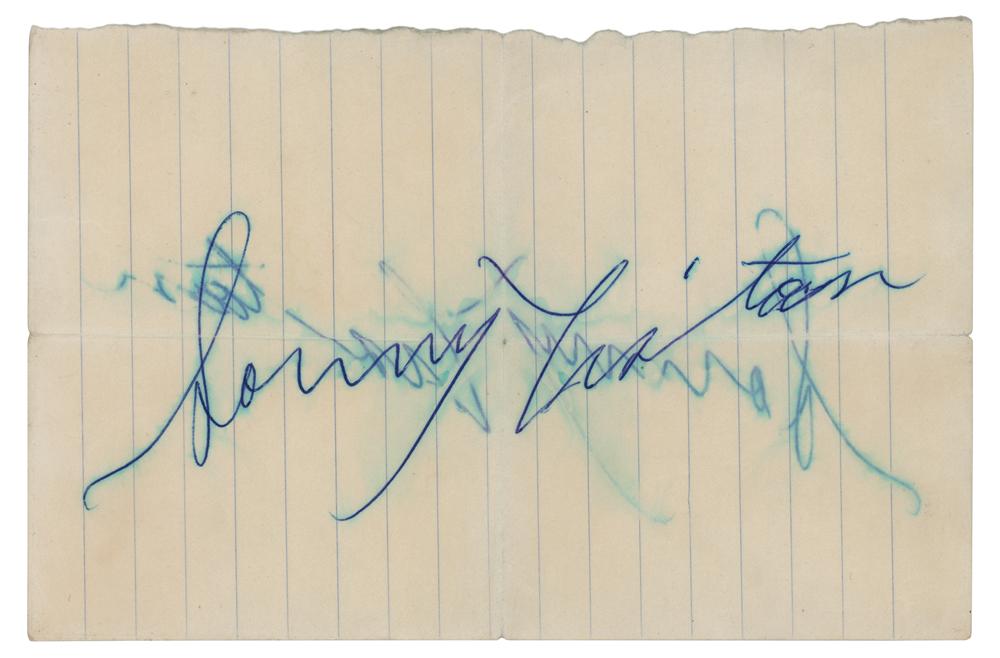 Sonny Liston